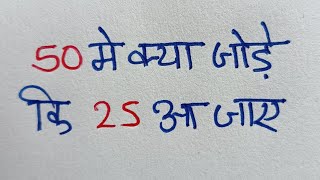 50 मे क्या जोड़े
कि 25 आ जाए